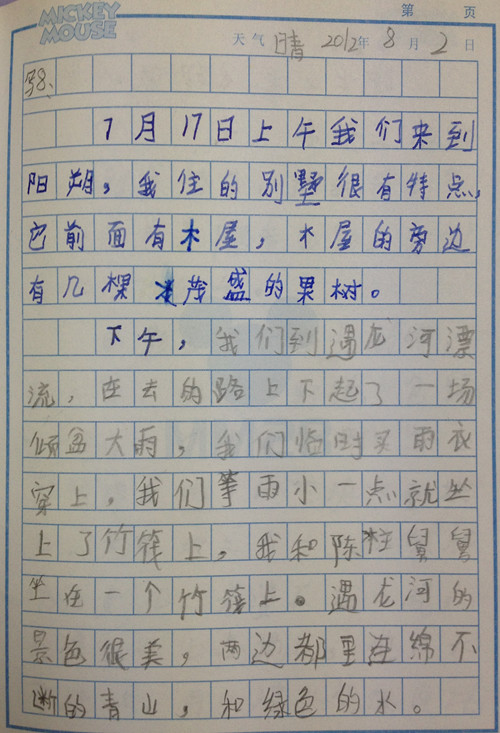 MICKEY MOUSE
第 页
天气 晴 2012年 8月 2日
38、
7月17日上午我们来到
阳朔，我住的别墅很有特点，
它前面有木屋，木屋的旁边
有几棵茂盛的果树。
下午，我们到遇龙河漂
流，在去的路上下起了一场
倾盆大雨，我们临时买雨衣
穿上，我们等雨小一点就坐
上了竹筏上，我和陈柱舅舅
坐在一个竹筏上。遇龙河的
景色很美，两边都里连绵不
断的青山，和绿色的水。